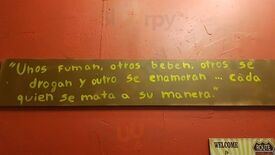 "Unos fuman, otros beben, otros se
drogan y outro se enamoran ... cada
quien se mata a su manera."
WELCOME
ROUTE